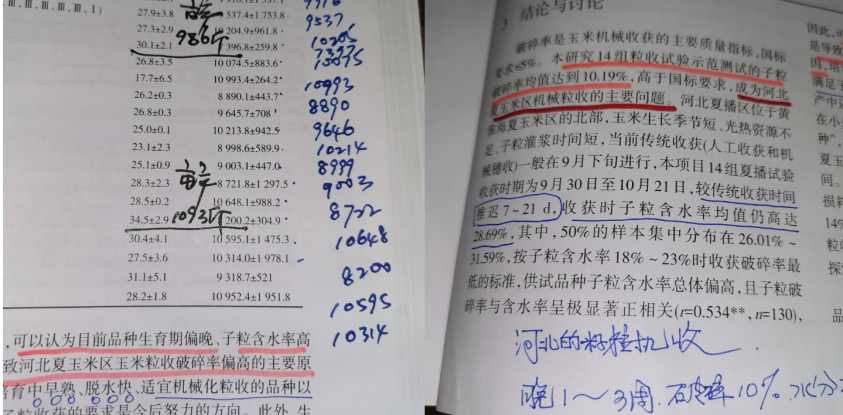 27.9±3.8 537.4±1 753.8
27.3±2.9 204.9±961.8
30.1±2.1 396.8±259.8
26.8±3.5 10 074.5±883.6
17.7±6.5 10 993.4±264.2
26.2±0.3 8 890.1±443.7
26.8±0.3 9 645.7±708
25.0±0.1 10 213.8±942.5
23.1±2.3 8 998.6±589.9
25.1±0.9 9 003.1±447.0
28.3±2.3 8 721.8±1 297.5
28.5±0.2 10 648.1±988.2
34.5±2.9 200.2±304.9
30.4±4.1 10 595.1±1 475.3
27.5±3.6 10 314.0±1 978.1
31.1±5.1 9 318.7±521
28.2±1.8 10 952.4±1 951.8
9537
10205
10993
8890
9646
10214
8999
9003
8722
10648
8200
10595
10314
可以认为目前品种生育期偏晚、子粒含水率高
致河北夏玉米区玉米粒收破碎率偏高的主要原
培育中早熟、脱水快、适宜机械化粒收的品种以
子粒收获的要求是今后努力的方向。此外,生
3 结论与讨论
破碎率是玉米机械收获的主要质量指标,国标
要求≤5%。本研究14组粒收试验示范测试的子粒
破碎率均值达到10.19%,高于国标要求,成为河北
夏玉米区机械粒收的主要问题。河北夏播区位于黄
淮海夏玉米区的北部,玉米生长季节短、光热资源不
足、子粒灌浆时间短,当前传统收获(人工收获和机
械穗收)一般在9月下旬进行,本项目14组夏播试验
收获时期为9月30日至10月21日,较传统收获时间
推迟7~21 d,收获时子粒含水率均值仍高达
28.69%,其中,50%的样本集中分布在26.01%~
31.59%,按子粒含水率18%~23%时收获破碎率最
低的标准,供试品种子粒含水率总体偏高,且子粒破
碎率与含水率呈极显著正相关(r=0.534**, n=130),
河北的籽粒机收
晚1~3周 石碎率10% 水分
因此,
是导致
因,培
满足
产中
在小
种”,
夏玉
间。
损耗
14%
粒收
探
品